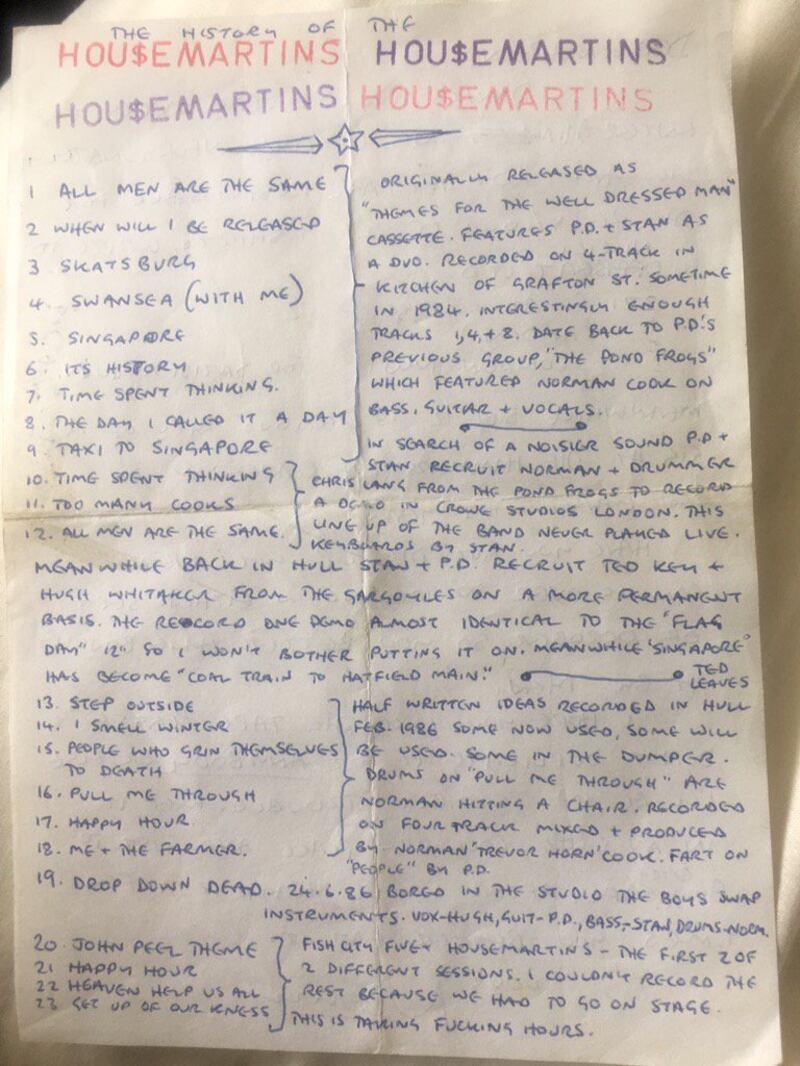 THE HISTORY OF THE
HOU$EMARTINS HOU$EMARTINS
HOU$EMARTINS HOU$EMARTINS
1 ALL MEN ARE THE SAME
2 WHEN WILL I BE RELEASED
3 SKATSBURG
4. SWANSEA (WITH ME)
5. SINGAPORE
6. ITS HISTORY
7. TIME SPENT THINKING.
8. THE DAY I CALLED IT A DAY
9. TAXI TO SINGAPORE
ORIGINALLY RELEASED AS
"THEMES FOR THE WELL DRESSED MAN"
CASSETTE. FEATURES P.D. + STAN AS
A DUO. RECORDED ON 4-TRACK IN
KITCHEN OF GRAFTON ST. SOMETIME
IN 1984. INTERESTINGLY ENOUGH
TRACKS 1, 4, + 8. DATE BACK TO P.D.'S
PREVIOUS GROUP, "THE POND FROGS"
WHICH FEATURED NORMAN COOK ON
BASS, GUITAR + VOCALS.
10. TIME SPENT THINKING
11. TOO MANY COOKS
12. ALL MEN ARE THE SAME.
IN SEARCH OF A NOISIER SOUND P.D +
STAN RECRUIT NORMAN + DRUMMER
CHRIS LANG FROM THE POND FROGS TO RECORD
A DEMO IN CROWE STUDIOS LONDON. THIS
LINE UP OF THE BAND NEVER PLAYED LIVE.
KEYBOARDS BY STAN.
MEANWHILE BACK IN HULL STAN + P.D. RECRUIT TED KEY +
HUGH WHITAKER FROM THE GARGOYLES ON A MORE PERMANENT
BASIS. THE RECORD ONE DEMO ALMOST IDENTICAL TO THE "FLAG
DAY" 12" SO I WON'T BOTHER PUTTING IT ON. MEANWHILE 'SINGAPORE'
HAS BECOME "COAL TRAIN TO HATFIELD MAIN." TED
LEAVES
13. STEP OUTSIDE
14. I SMELL WINTER
15. PEOPLE WHO GRIN THEMSELVES
TO DEATH
16. PULL ME THROUGH
17. HAPPY HOUR
18. ME + THE FARMER.
HALF WRITTEN IDEAS RECORDED IN HULL
FEB. 1986 SOME NOW USED, SOME WILL
BE USED. SOME IN THE DUMPER.
DRUMS ON "PULL ME THROUGH" ARE
NORMAN HITTING A CHAIR. RECORDED
ON FOUR TRACK MIXED + PRODUCED
BY NORMAN 'TREVOR HORN' COOK. FART ON
"PEOPLE" BY P.D.
19. DROP DOWN DEAD. 24.6.86 BORED IN THE STUDIO THE BOYS SWAP
INSTRUMENTS. VOX-HUGH, GUIT-P.D., BASS,-STAN, DRUMS-NORM.
20. JOHN PEEL THEME
21 HAPPY HOUR
22 HEAVEN HELP US ALL
23 GET UP OF OUR KNESS
FISH CITY FIVE + HOUSEMARTINS - THE FIRST 2 OF
2 DIFFERENT SESSIONS. I COULDN'T RECORD THE
REST BECAUSE WE HAD TO GO ON STAGE.
THIS IS TAKING FUCKING HOURS.